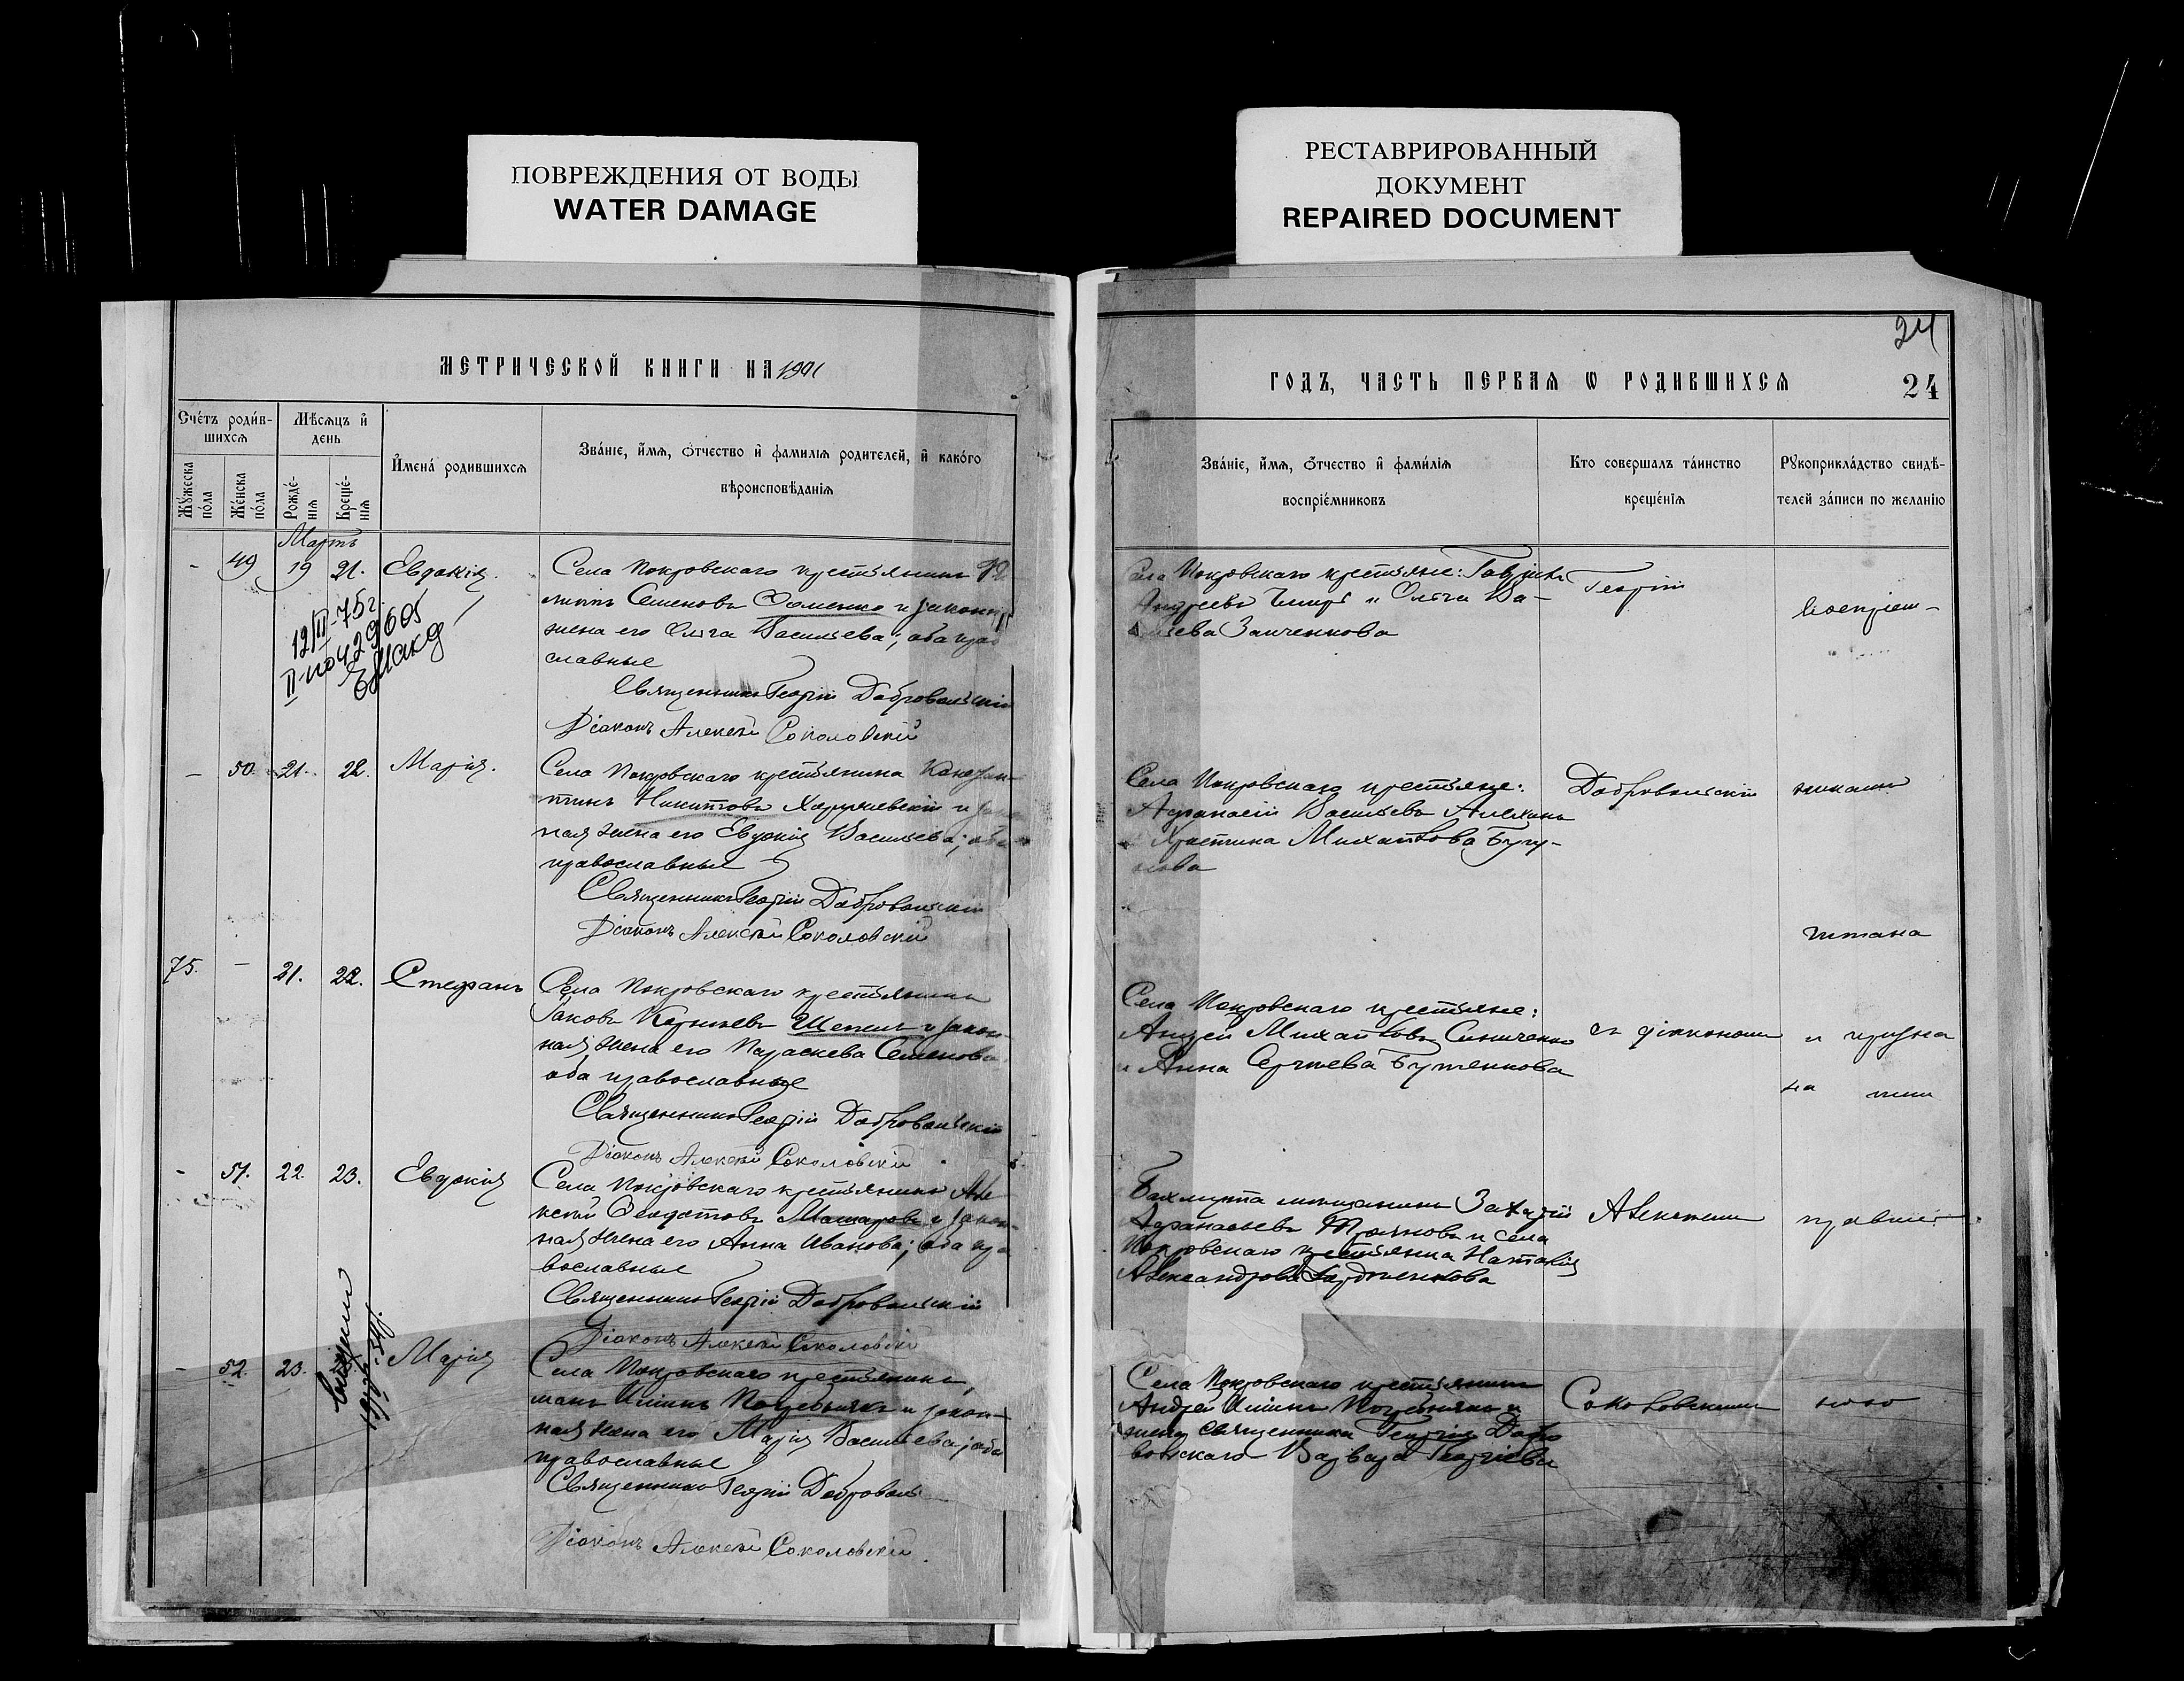 ПОВРЕЖДЕНИЯ ОТ ВОДЫ
WATER DAMAGE
РЕСТАВРИРОВАННЫЙ
ДОКУМЕНТ
REPAIRED DOCUMENT
МЕТРИЧЕСКОЙ КНИГИ НА 1901
Счетъ родив-
шихся
Мѣсяцъ и
день
Имена родившихся
Званіе, имя, отчество и фамилія родителей, и какого
вѣроисповѣданія
Мужеска
пола
Женска
пола
Рожде-
нія
Креще-
нія
Мартъ
- 49 19 21. Евдокія.
Села Покровскаго крестьянинъ
Семеновъ Фоменко и законн
жена его Ольга Васильева; оба прав
славные
Священникъ Георгій Добровольскій
Діаконъ Алексѣй Соколовскій
12/II-75г.
II-НО 429605
- 50. 21. 22. Марія.
Села Покровскаго крестьянина Констан-
тинъ Никитовъ и
ная жена его Евдокія Васильева; оба
православные
Священникъ Георгій Добровольскій
Діаконъ Алексѣй Соколовскій
75. - 21. 22. Стефанъ
Села Покровскаго крестьянинъ
Іаковъ Шепель и закон-
ная жена его Параскева Семенова
оба православные
Священникъ Георгій Добровольскій
Діаконъ Алексѣй Соколовскій
- 51. 22. 23. Евдокія
Села Покровскаго крестьянинъ Але
ксѣй Феодотовъ и закон-
ная жена его Анна Иванова; оба пра
вославные
Священникъ Георгій Добровольскій
Діаконъ Алексѣй Соколовскій
- 52. 23. Марія
Села Покровскаго крестьянинъ
Ильинъ Погребнякъ и закон-
ная жена его Марія Васильева; оба
православные
Священникъ Георгій Доброволь
Діаконъ Алексѣй Соколовскій
24
ГОДЪ, ЧАСТЬ ПЕРВАЯ Ѡ РОДИВШИХСЯ
24
Званіе, имя, отчество и фамилія
воспріемниковъ
Кто совершалъ таинство
крещенія
Рукоприкладство свидѣ-
телей записи по желанію
Села Покровскаго крестьяне: Гавріилъ
Андреевъ и Ольга Ва-
сильева Заиченкова
Георгій
воспріем-
Села Покровскаго крестьяне:
Афанасій Васильевъ
и Христина Михайлова
нова
Добровольскій
никами
читана
Села Покровскаго крестьяне:
Андрей Михайловъ Синиченко
и Анна Сергѣева Бутенкова
съ діакономъ
и призна
на
Бахмута мѣщанинъ Захарій
Афанасьевъ и села
Покровскаго крестьянка Наталія
Александрова
Алексѣемъ
правиль
Села Покровскаго крестьянинъ
Андрей Ильинъ Погребнякъ и
жена священника Георгія Добро
вольскаго Варвара Георгіева
Соколовскимъ
ною